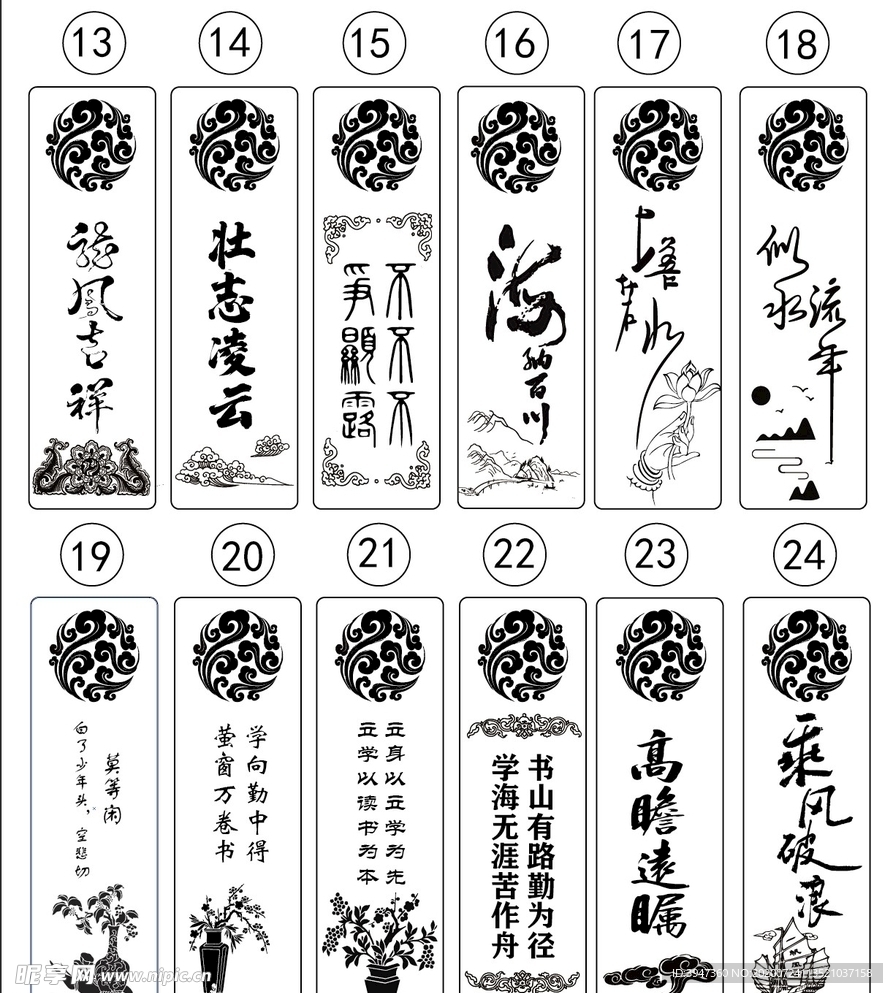 13
龍鳳吉祥
14
壮志凌云
15
不不不
爭顯露
16
海納百川
17
上善
若水
18
似水
流年
19
莫等闲
白了少年头，空悲切
20
学向勤中得
萤窗万卷书
21
立身以立学为先
立学以读书为本
22
书山有路勤为径
学海无涯苦作舟
23
高瞻遠瞩
24
乘风破浪
昵享网 www.nipic.cn
ID:3947360 NO:20200724113521037158